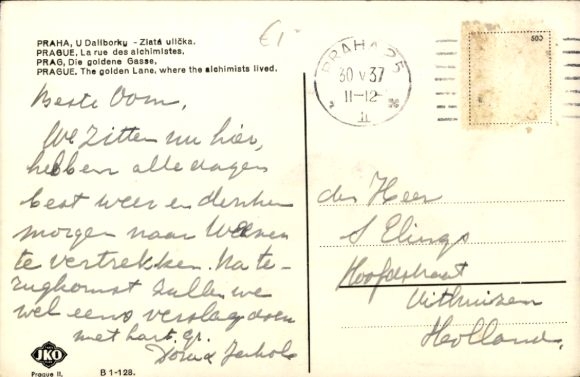 PRAHA, U Daliborky - Zlatá ulička.
PRAGUE. La rue des alchimistes.
PRAG, Die goldene Gasse.
PRAGUE. The golden Lane, where the alchimists lived.
€1-
PRAHA 25
30 V 37
11-12
500
Beste Oom,
We zitten nu hier,
hebben alle dagen
best weer en denken
morgen naar Weenen
te vertrekken. Na te-
rugkomst zullen we
wel eens verslag doen
met hart. gr.
den Heer
S Elings
Hoofdstraat
Uithuizen
Holland.
JKO
Prague II.
B 1-128.